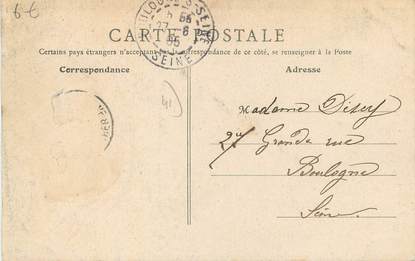 6-€
CARTE POSTALE
Certains pays étrangers n'acceptant pas la correspondance de ce côté, se renseigner à la Poste
Correspondance
Adresse
41
Madame
27 Grande rue
Boulogne
Seine
SEINE